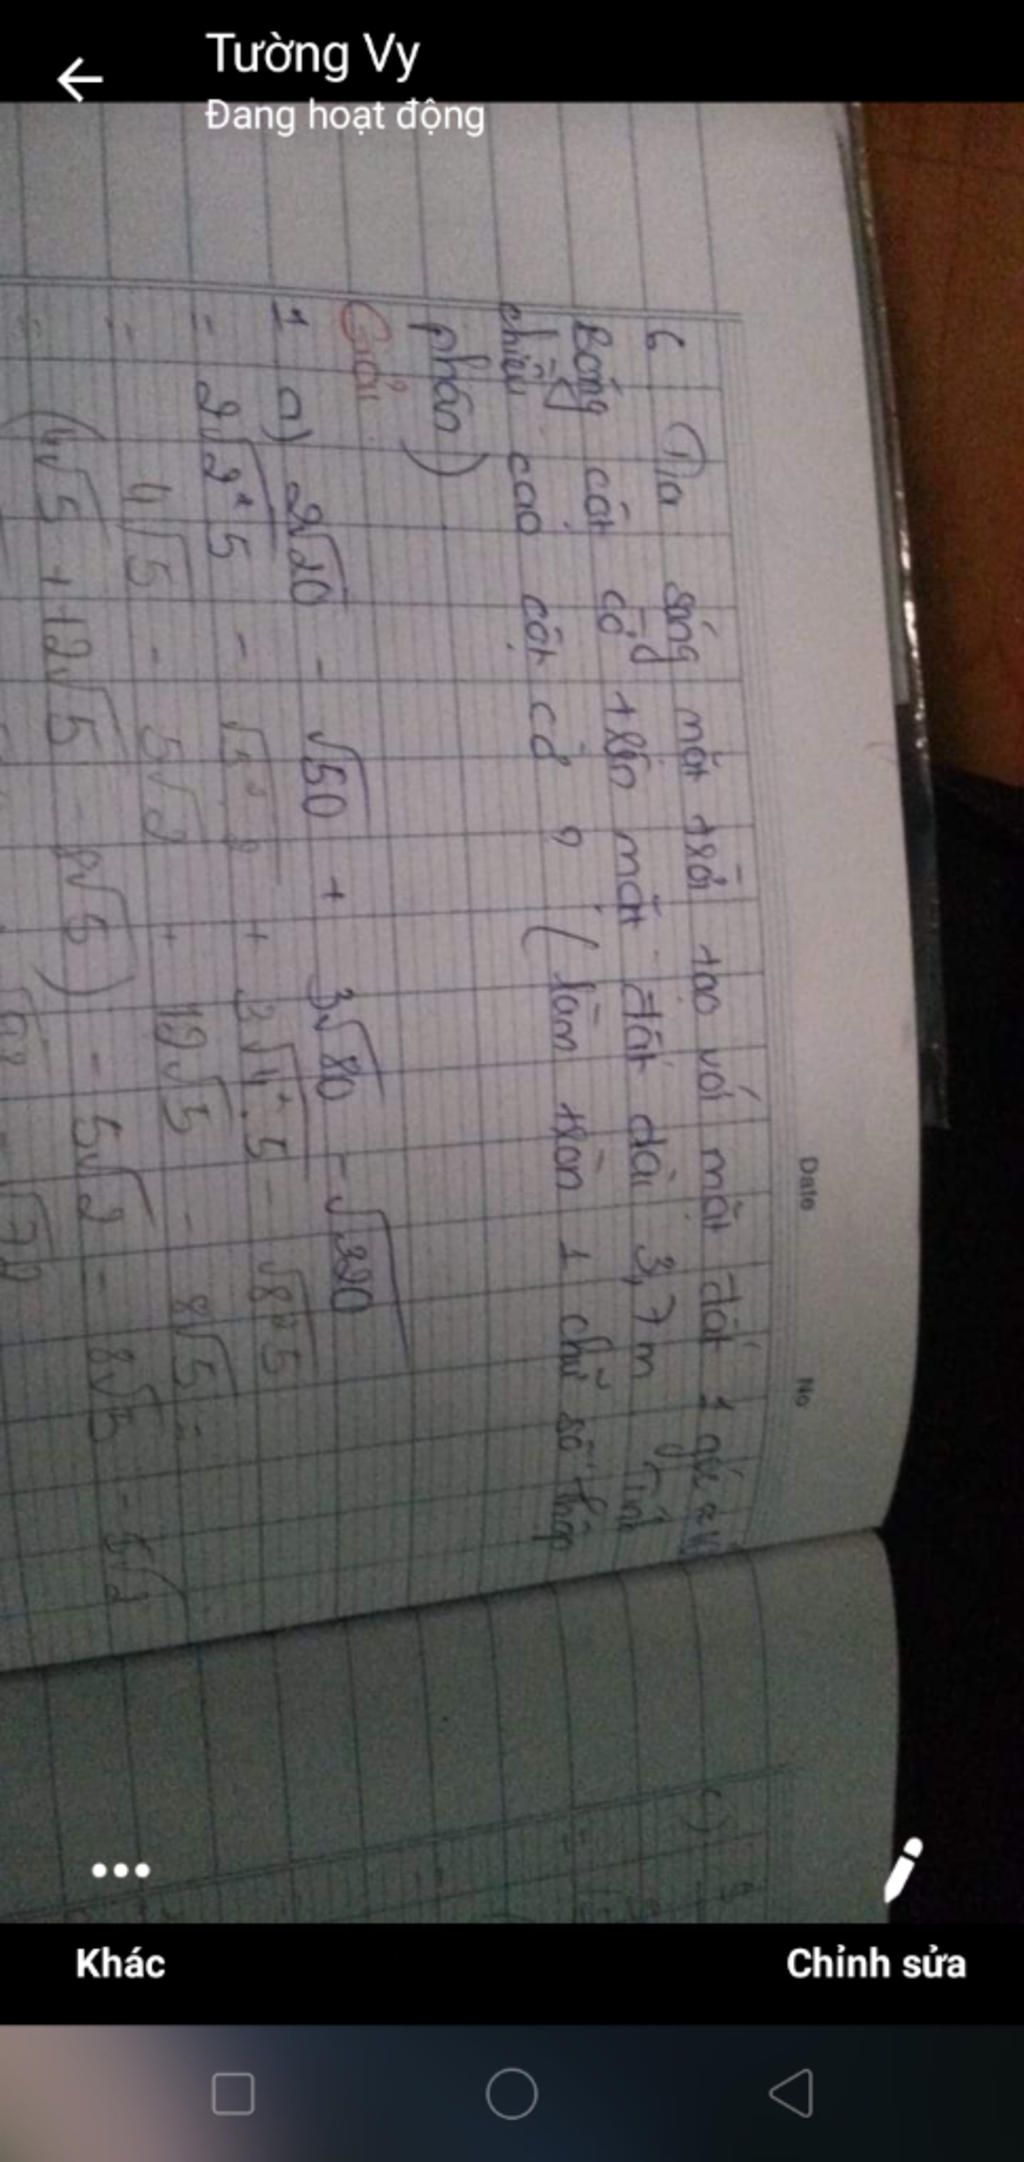 Tường Vy
Đang hoạt động
Date No
6 Tia sáng mặt trời tạo với mặt đất 1 góc
Bóng cột cờ trên mặt đất dài 3,7m Tính
chiều cao cột cờ ? ( làm tròn 1 chữ số thập
phân )
Giải
1 a) 2√20 - √50 + 3√80 - √320
= 2√2².5 - + 3√4².5 - √8².5
= 4√5 - 5√2 + 12√5 - 8√5 =
(4√5 + 12√5 - 8√5) - 5√2 = 8√5 - 5√2
Khác
Chỉnh sửa